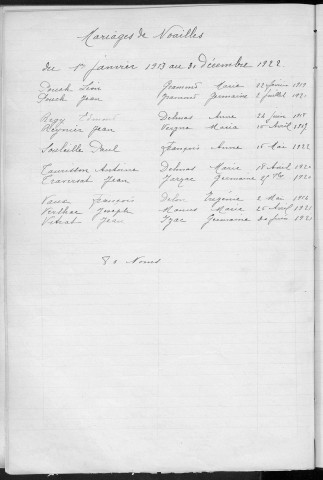 Mariages de Noailles
du 1er janvier 1913 au 31 décembre 1922
Douch Léon Grammé Marie 12 Juin 1919
Douch Jean Grammé Germaine 2 juillet 1920
Regy Edmond Delmas Anne 26 juin 1918
Reynier Jean Vergne Maria 15 Avril 1919
Souleille Paul François Anne 15 Mai 1922
Tamisson Antoine Delmas Marie 18 Avril 1920
Traversat Jean Jarzac Germaine 1920
Vaur François Delon Eugénie 2 Mai 1916
Joseph Marie 25 Avril 1921
Jean Germaine 30 juin 1921
80 Noms